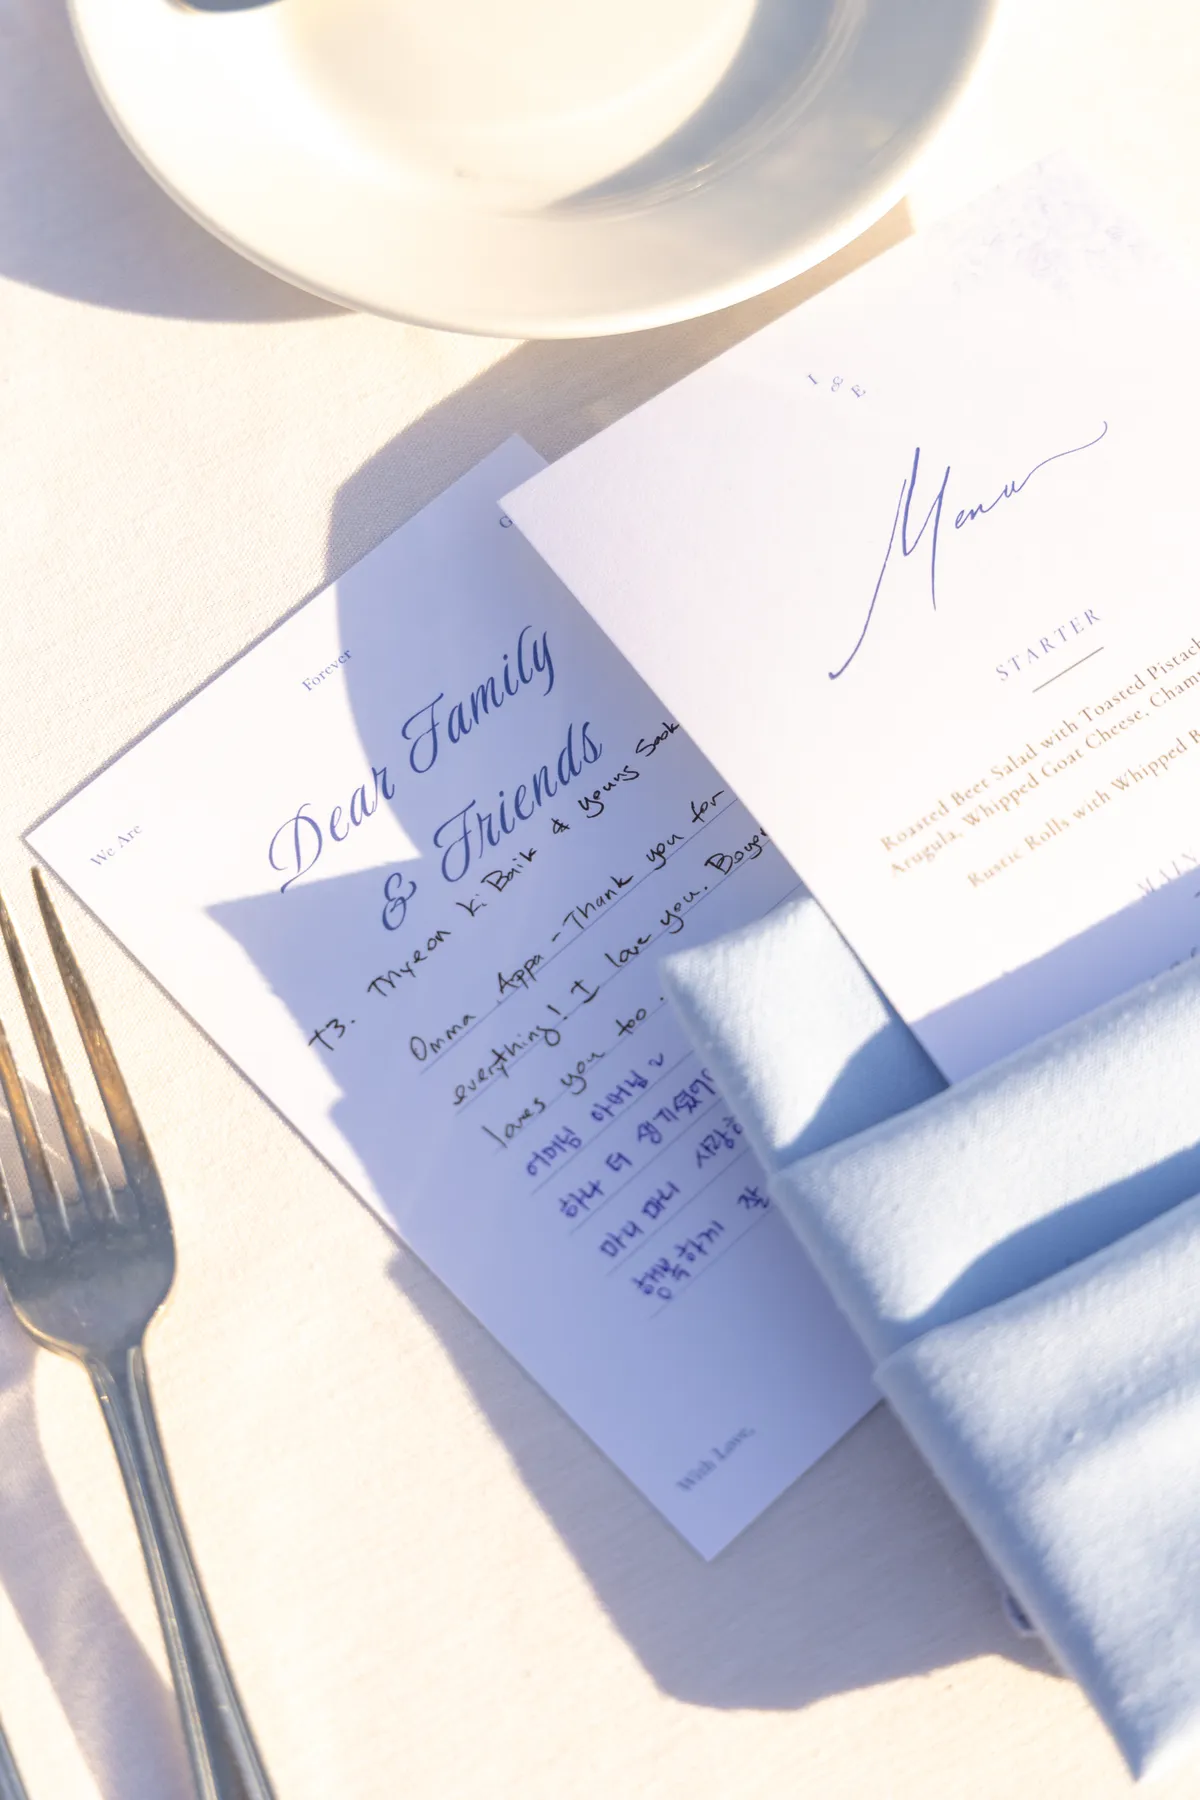 We Are
Forever
Dear Family
& Friends
T3. Myeon Ki Baik & Young Sook
Omma Appa - Thank you for
everything! I love you.
loves you too.
어머님 아버님~
하나 더 생기셨어
마니 마니 사랑
행복하게 잘
With Love,
I & E
Menu
STARTER
Roasted Beet Salad with Toasted Pistach
Arugula, Whipped Goat Cheese, Cham
Rustic Rolls with Whipped B